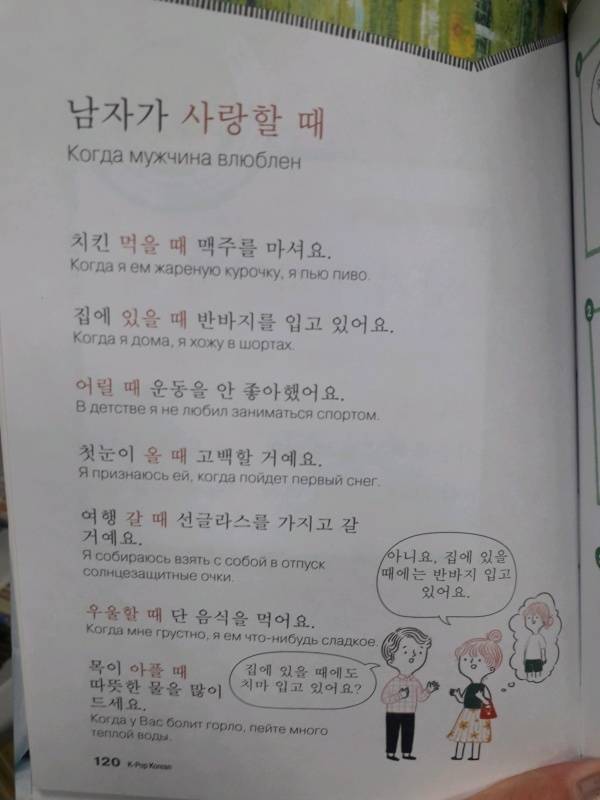 남자가 사랑할 때
Когда мужчина влюблен
치킨 먹을 때 맥주를 마셔요.
Когда я ем жареную курочку, я пью пиво.
집에 있을 때 반바지를 입고 있어요.
Когда я дома, я хожу в шортах.
어릴 때 운동을 안 좋아했어요.
В детстве я не любил заниматься спортом.
첫눈이 올 때 고백할 거예요.
Я признаюсь ей, когда пойдет первый снег.
여행 갈 때 선글라스를 가지고 갈
거예요.
Я собираюсь взять с собой в отпуск
солнцезащитные очки.
우울할 때 단 음식을 먹어요.
Когда мне грустно, я ем что-нибудь сладкое.
목이 아플 때
따뜻한 물을 많이
드세요.
Когда у Вас болит горло, пейте много
теплой воды.
아니요, 집에 있을
때에는 반바지 입고
있어요.
집에 있을 때에도
치마 입고 있어요?
120 K-Pop Korean
2